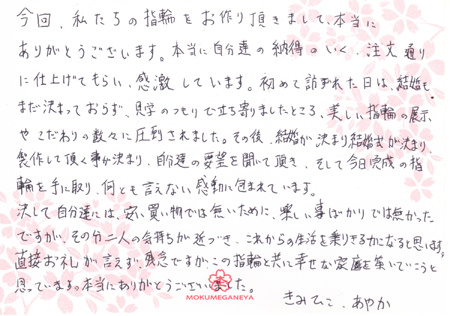 今回、私たちの指輪をお作り頂きまして、本当に
ありがとうございます。本当に自分達の納得のいく、注文通り
に仕上げてもらい、感激しています。初めて訪ずれた日は、結婚も
まだ決まっておらず、見学のつもりで立ち寄りましたところ、美しい指輪の展示
やこだわりの数々に圧倒されました。その後、結婚が決まり結婚式が決まり、
製作して頂く事が決まり、自分達の要望を聞いて頂き、そして今日完成の指
輪を手に取り、何とも言えない感動に包まれています。
決して自分達には、安い買い物では無いために、楽しい事ばかりでは無かった
ですが、その分二人の気持ちが近づき、これからの生活を乗りきる力になると思います。
直接お礼が言えず、残念ですが、この指輪と共に幸せな家庭を築いていこうと
思っています。本当にありがとうございました。
MOKUMEGANEYA
きみひこ、あやか